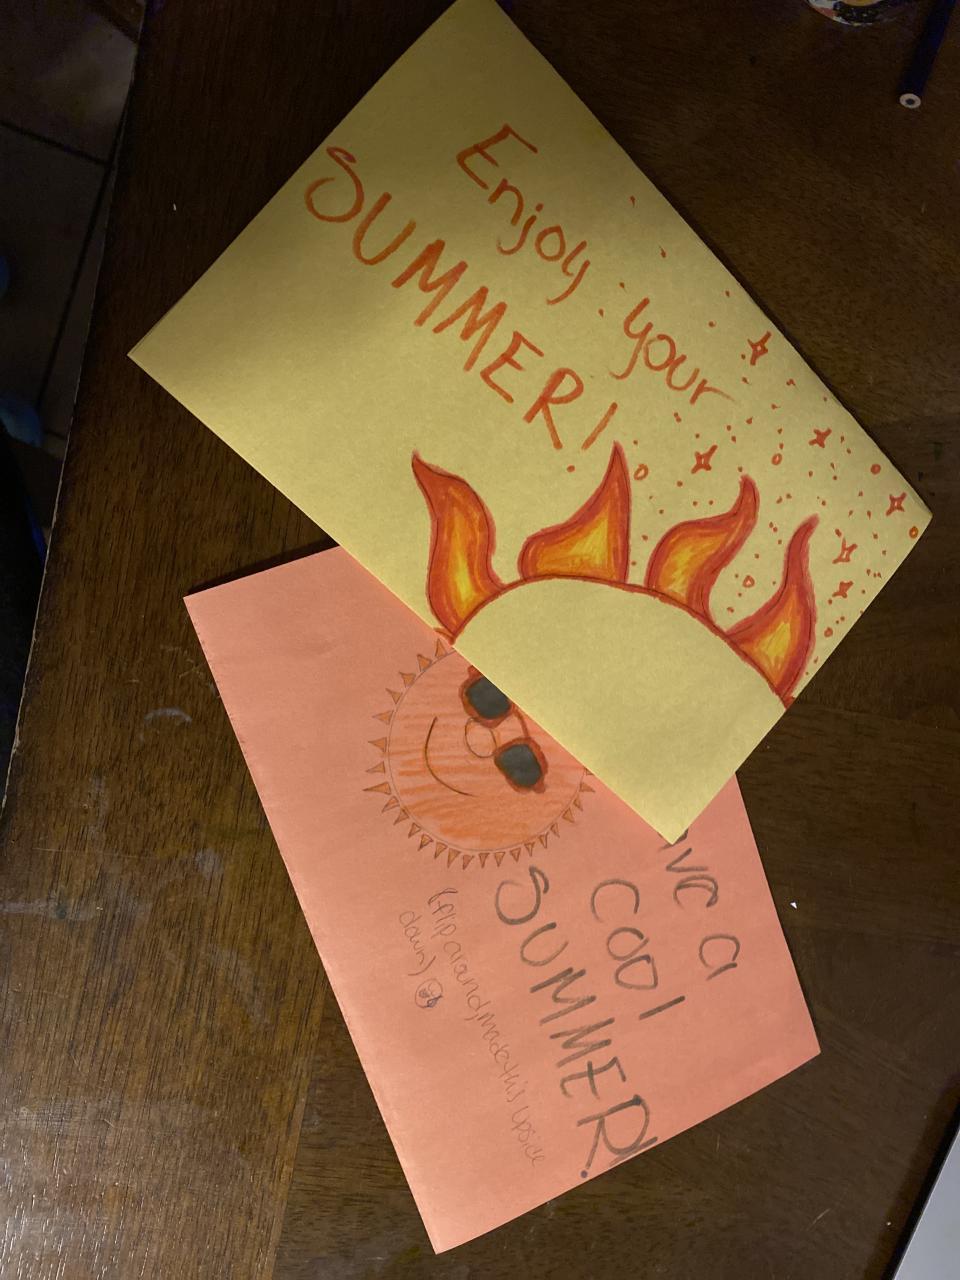 Enjoy your
SUMMER!
ve a
cool
SUMMER!
(flip around, made this upsice
down)